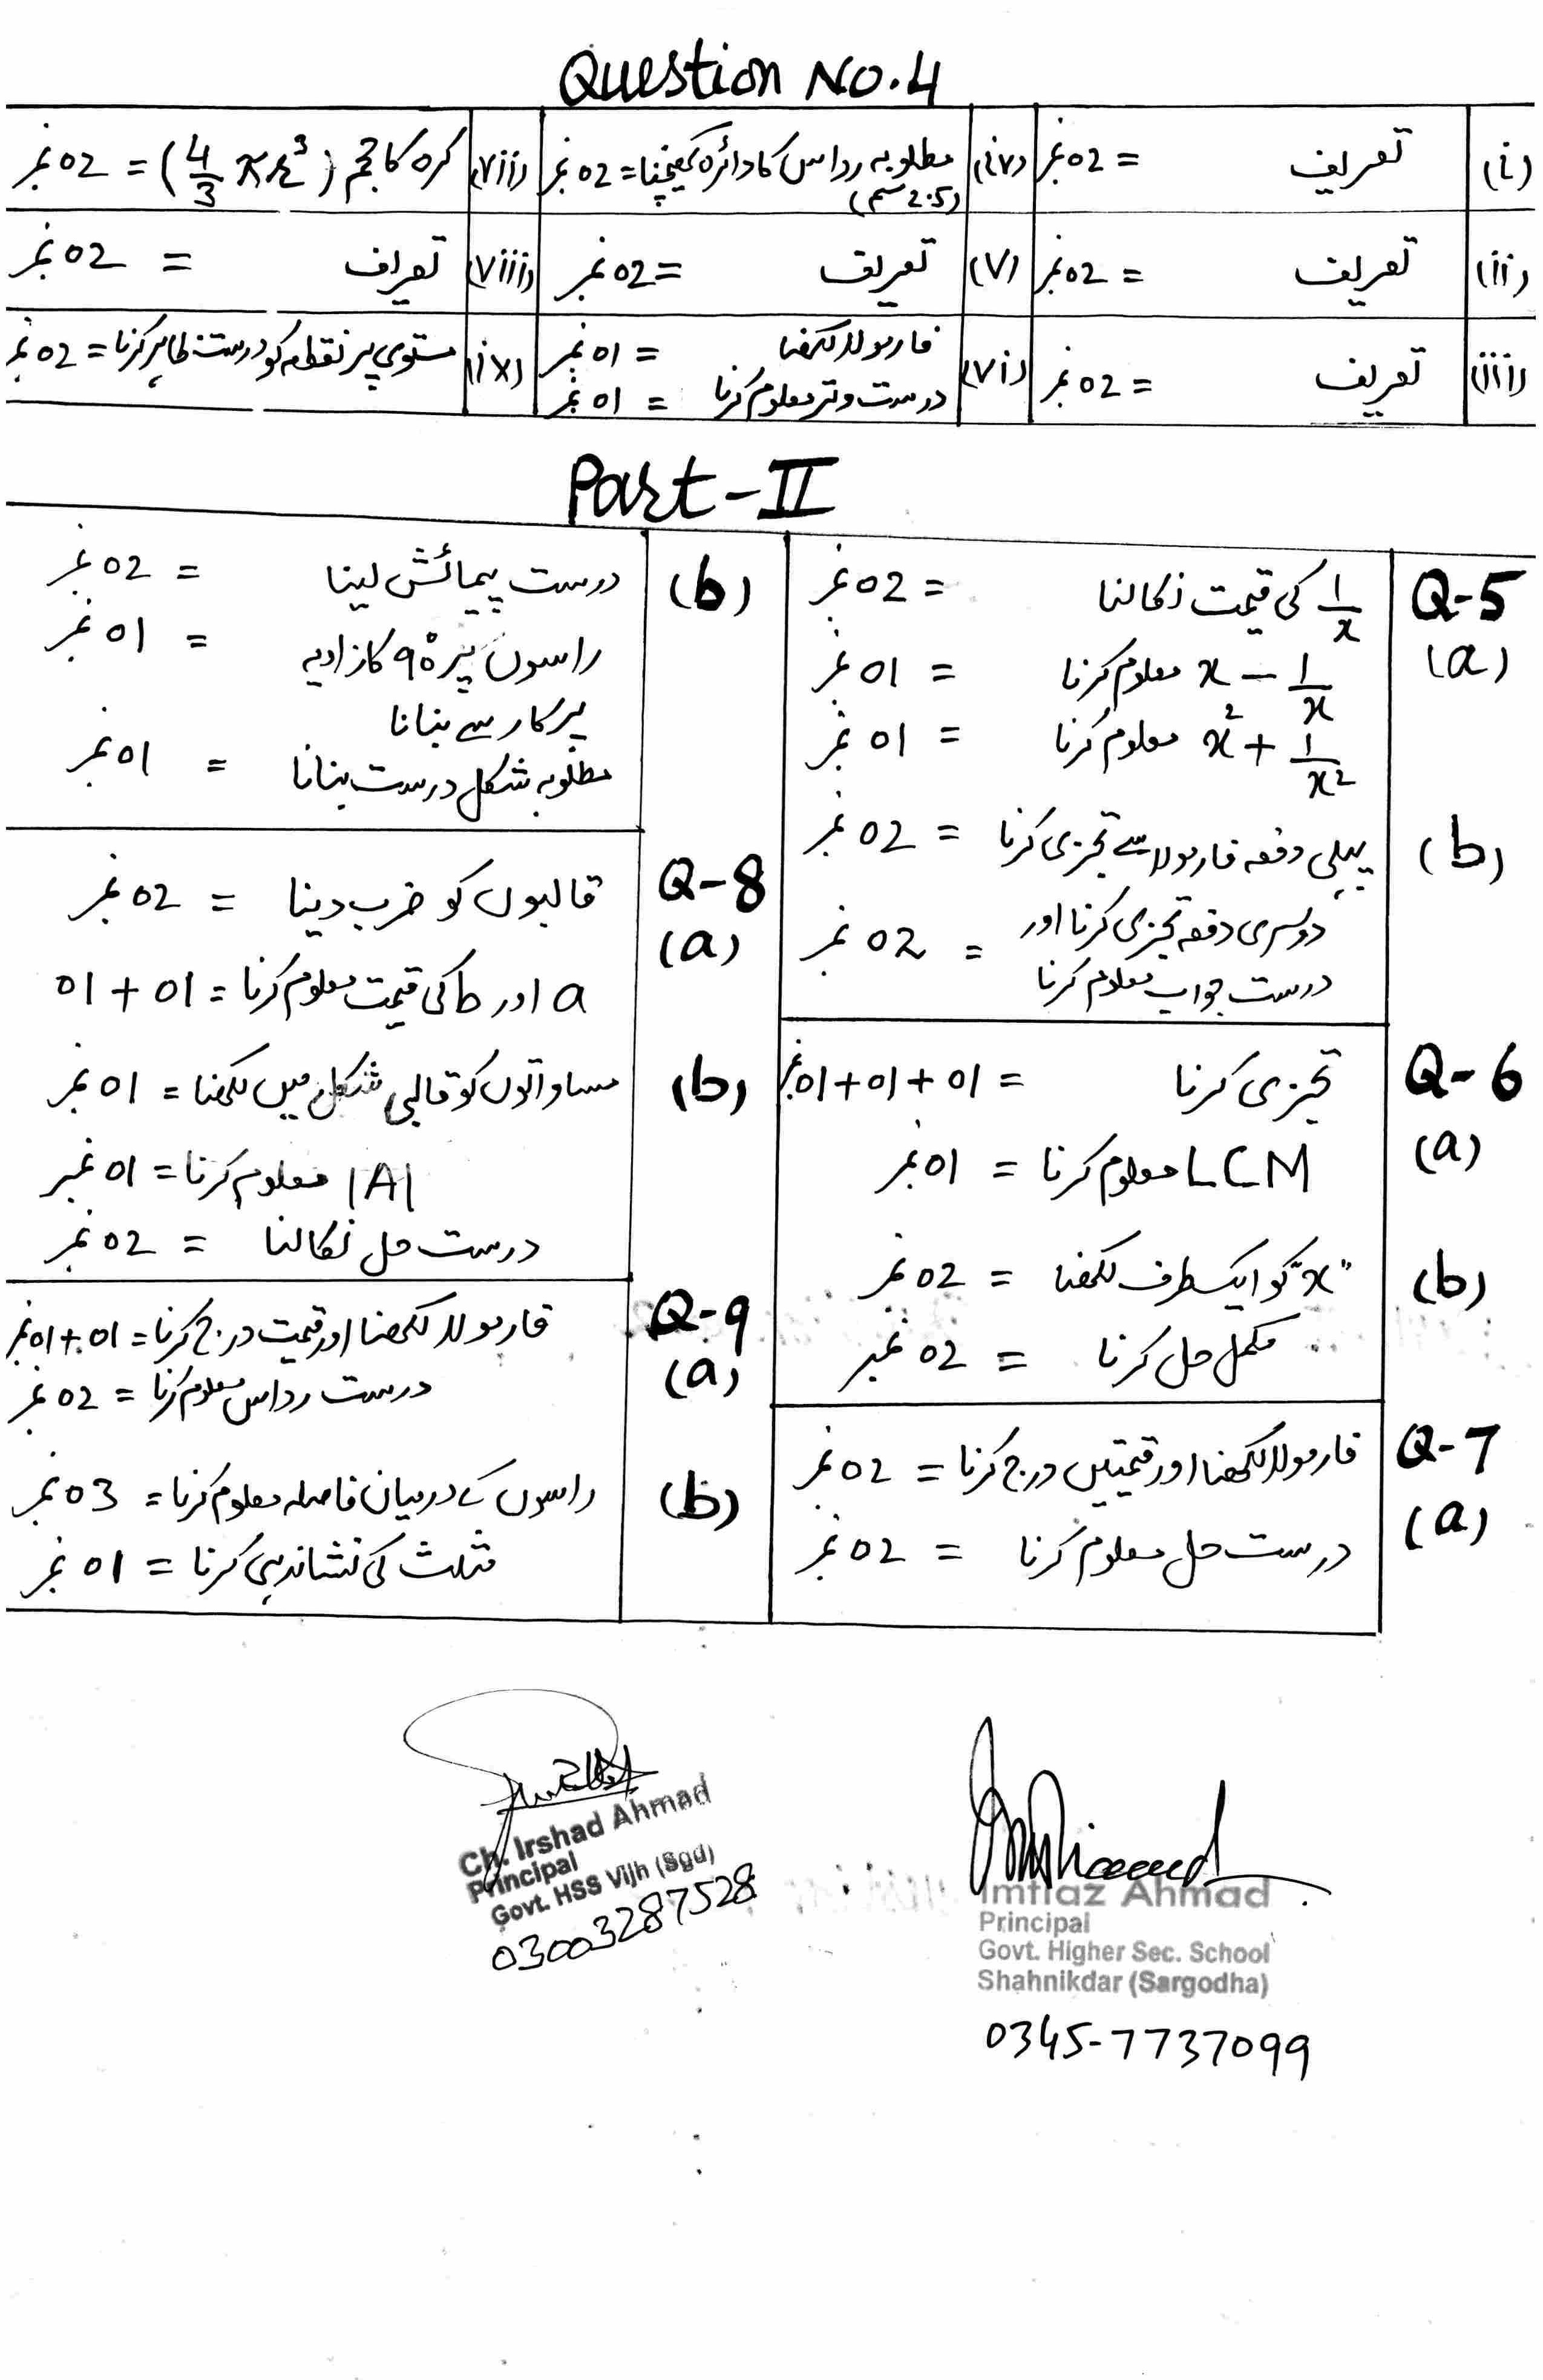 Question No.4
(i) تعریف = 02 نمبر
(ii) تعریف = 02 نمبر
(iii) تعریف = 02 نمبر
(iv) مطلوبہ رداس کا دائرہ کھینچنا = 02 نمبر
(2.5 سم)
(v) تعریف = 02 نمبر
(vi) فارمولا لکھنا = 01 نمبر
درست وتر معلوم کرنا = 01 نمبر
(vii) کرہ کا حجم (4/3 πr³) = 02 نمبر
(viii) تعریف = 02 نمبر
(ix) مستوی پر نقطہ کو درست ظاہر کرنا = 02 نمبر
Part-II
Q-5
(a) 1/x کی قیمت نکالنا = 02 نمبر
x - 1/x معلوم کرنا = 01 نمبر
x² + 1/x² معلوم کرنا = 01 نمبر
(b) پہلی دفعہ فارمولا سے تجزی کرنا = 02 نمبر
دوسری دفعہ تجزی کرنا اور = 02 نمبر
درست جواب معلوم کرنا
Q-6
(a) تجزی کرنا = 01+01+01 نمبر
LCM معلوم کرنا = 01 نمبر
(b) "x" کو ایک طرف لکھنا = 02 نمبر
مکمل حل کرنا = 02 نمبر
Q-7
(a) فارمولا لکھنا اور قیمتیں درج کرنا = 02 نمبر
درست حل معلوم کرنا = 02 نمبر
(b) درست پیمائش لینا = 02 نمبر
راسوں پر 90° کا زاویہ = 01 نمبر
پرکار سے بنانا
مطلوبہ شکل درست بنانا = 01 نمبر
Q-8
(a) قالبوں کو ضرب دینا = 02 نمبر
a اور b کی قیمت معلوم کرنا = 01 + 01
(b) مساواتوں کو قالبی شکل میں لکھنا = 01 نمبر
|A| معلوم کرنا = 01 نمبر
درست حل نکالنا = 02 نمبر
Q-9
(a) فارمولا لکھنا اور قیمت درج کرنا = 01+01 نمبر
درست رداس معلوم کرنا = 02 نمبر
(b) راسوں کے درمیان فاصلہ معلوم کرنا = 03 نمبر
مثلث کی نشاندہی کرنا = 01 نمبر
Ch. Irshad Ahmad
Principal
Govt. HSS Vijh (Sgd)
03003287528
Imtiaz Ahmad
Principal
Govt. Higher Sec. School
Shahnikdar (Sargodha)
0345-7737099